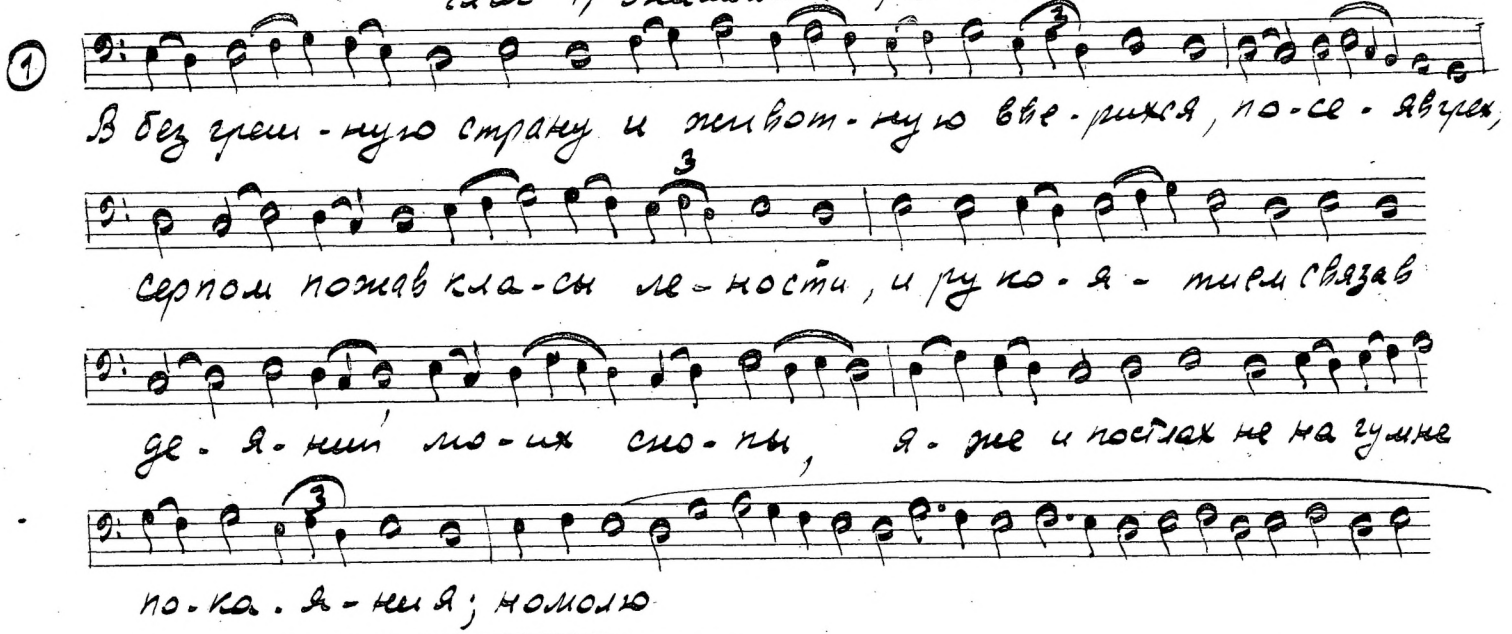 1
В без греш-ную страну и живот-ную вве-рихся, по-се-яв грех;
3
3
серпом пожав кла-сы ле-ности, и ру ко-я-тием связав
де-я-ний мо-их сно-пы, я-же и постлах не на гумне
3
по-ка-я-ния; но молю